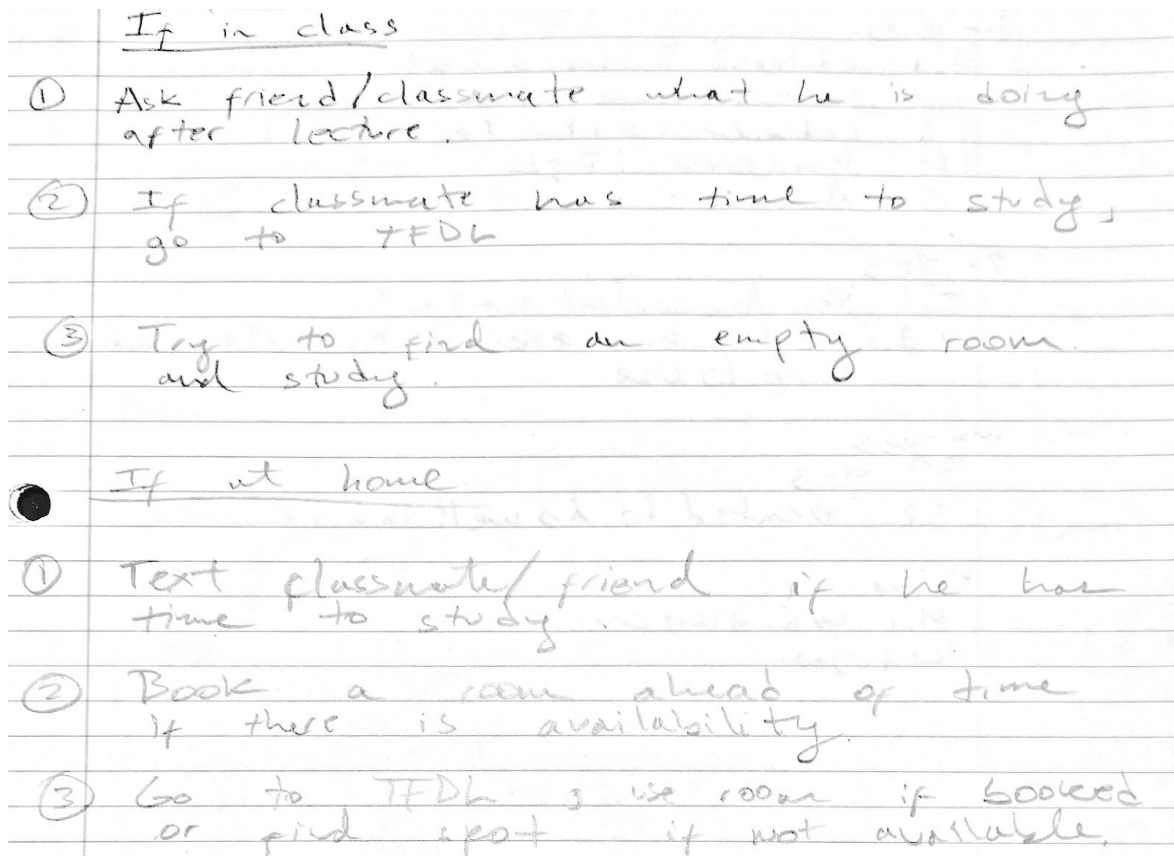 If in class
① Ask friend/classmate what he is doing
after lecture.
② If classmate has time to study,
go to TFDL
③ Try to find an empty room
and study.
If at home
① Text classmate/friend if he has
time to study.
② Book a room ahead of time
if there is availability.
③ Go to TFDL, use room if booked
or find spot if not available.